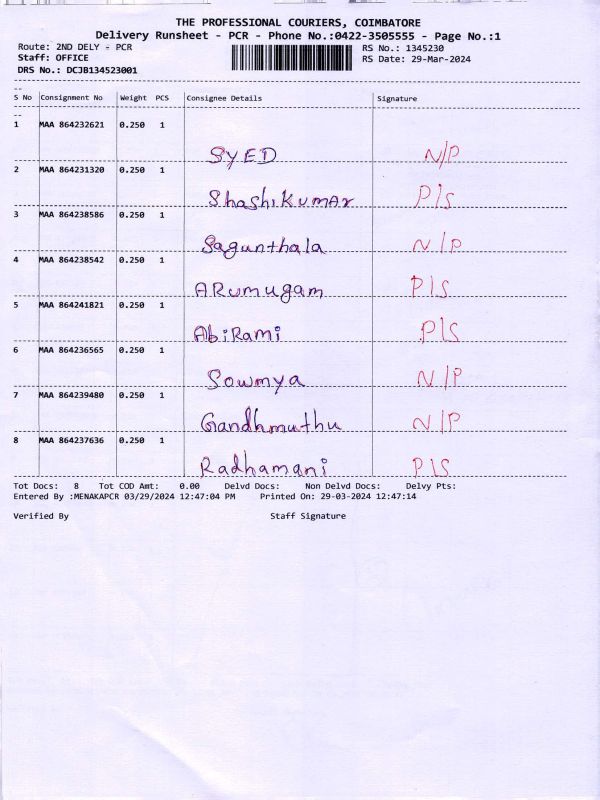 THE PROFESSIONAL COURIERS, COIMBATORE
Delivery Runsheet - PCR - Phone No.:0422-3505555 - Page No.:1
Route: 2ND DELY - PCR RS No.: 1345230
Staff: OFFICE RS Date: 29-Mar-2024
DRS No.: DCJB134523001
S No Consignment No Weight PCS Consignee Details Signature
1 MAA 864232621 0.250 1
SYED N/P
2 MAA 864231320 0.250 1
ShaShiKumAr P/S
3 MAA 864238586 0.250 1
Sagunthala N/P
4 MAA 864238542 0.250 1
ARumugam P/S
5 MAA 864241821 0.250 1
AbiRami P/S
6 MAA 864236565 0.250 1
Sowmya N/P
7 MAA 864239480 0.250 1
Gandhmuthu N/P
8 MAA 864237636 0.250 1
Radhamani P/S
Tot Docs: 8 Tot COD Amt: 0.00 Delvd Docs: Non Delvd Docs: Delvy Pts:
Entered By :MENAKAPCR 03/29/2024 12:47:04 PM Printed On: 29-03-2024 12:47:14
Verified By Staff Signature